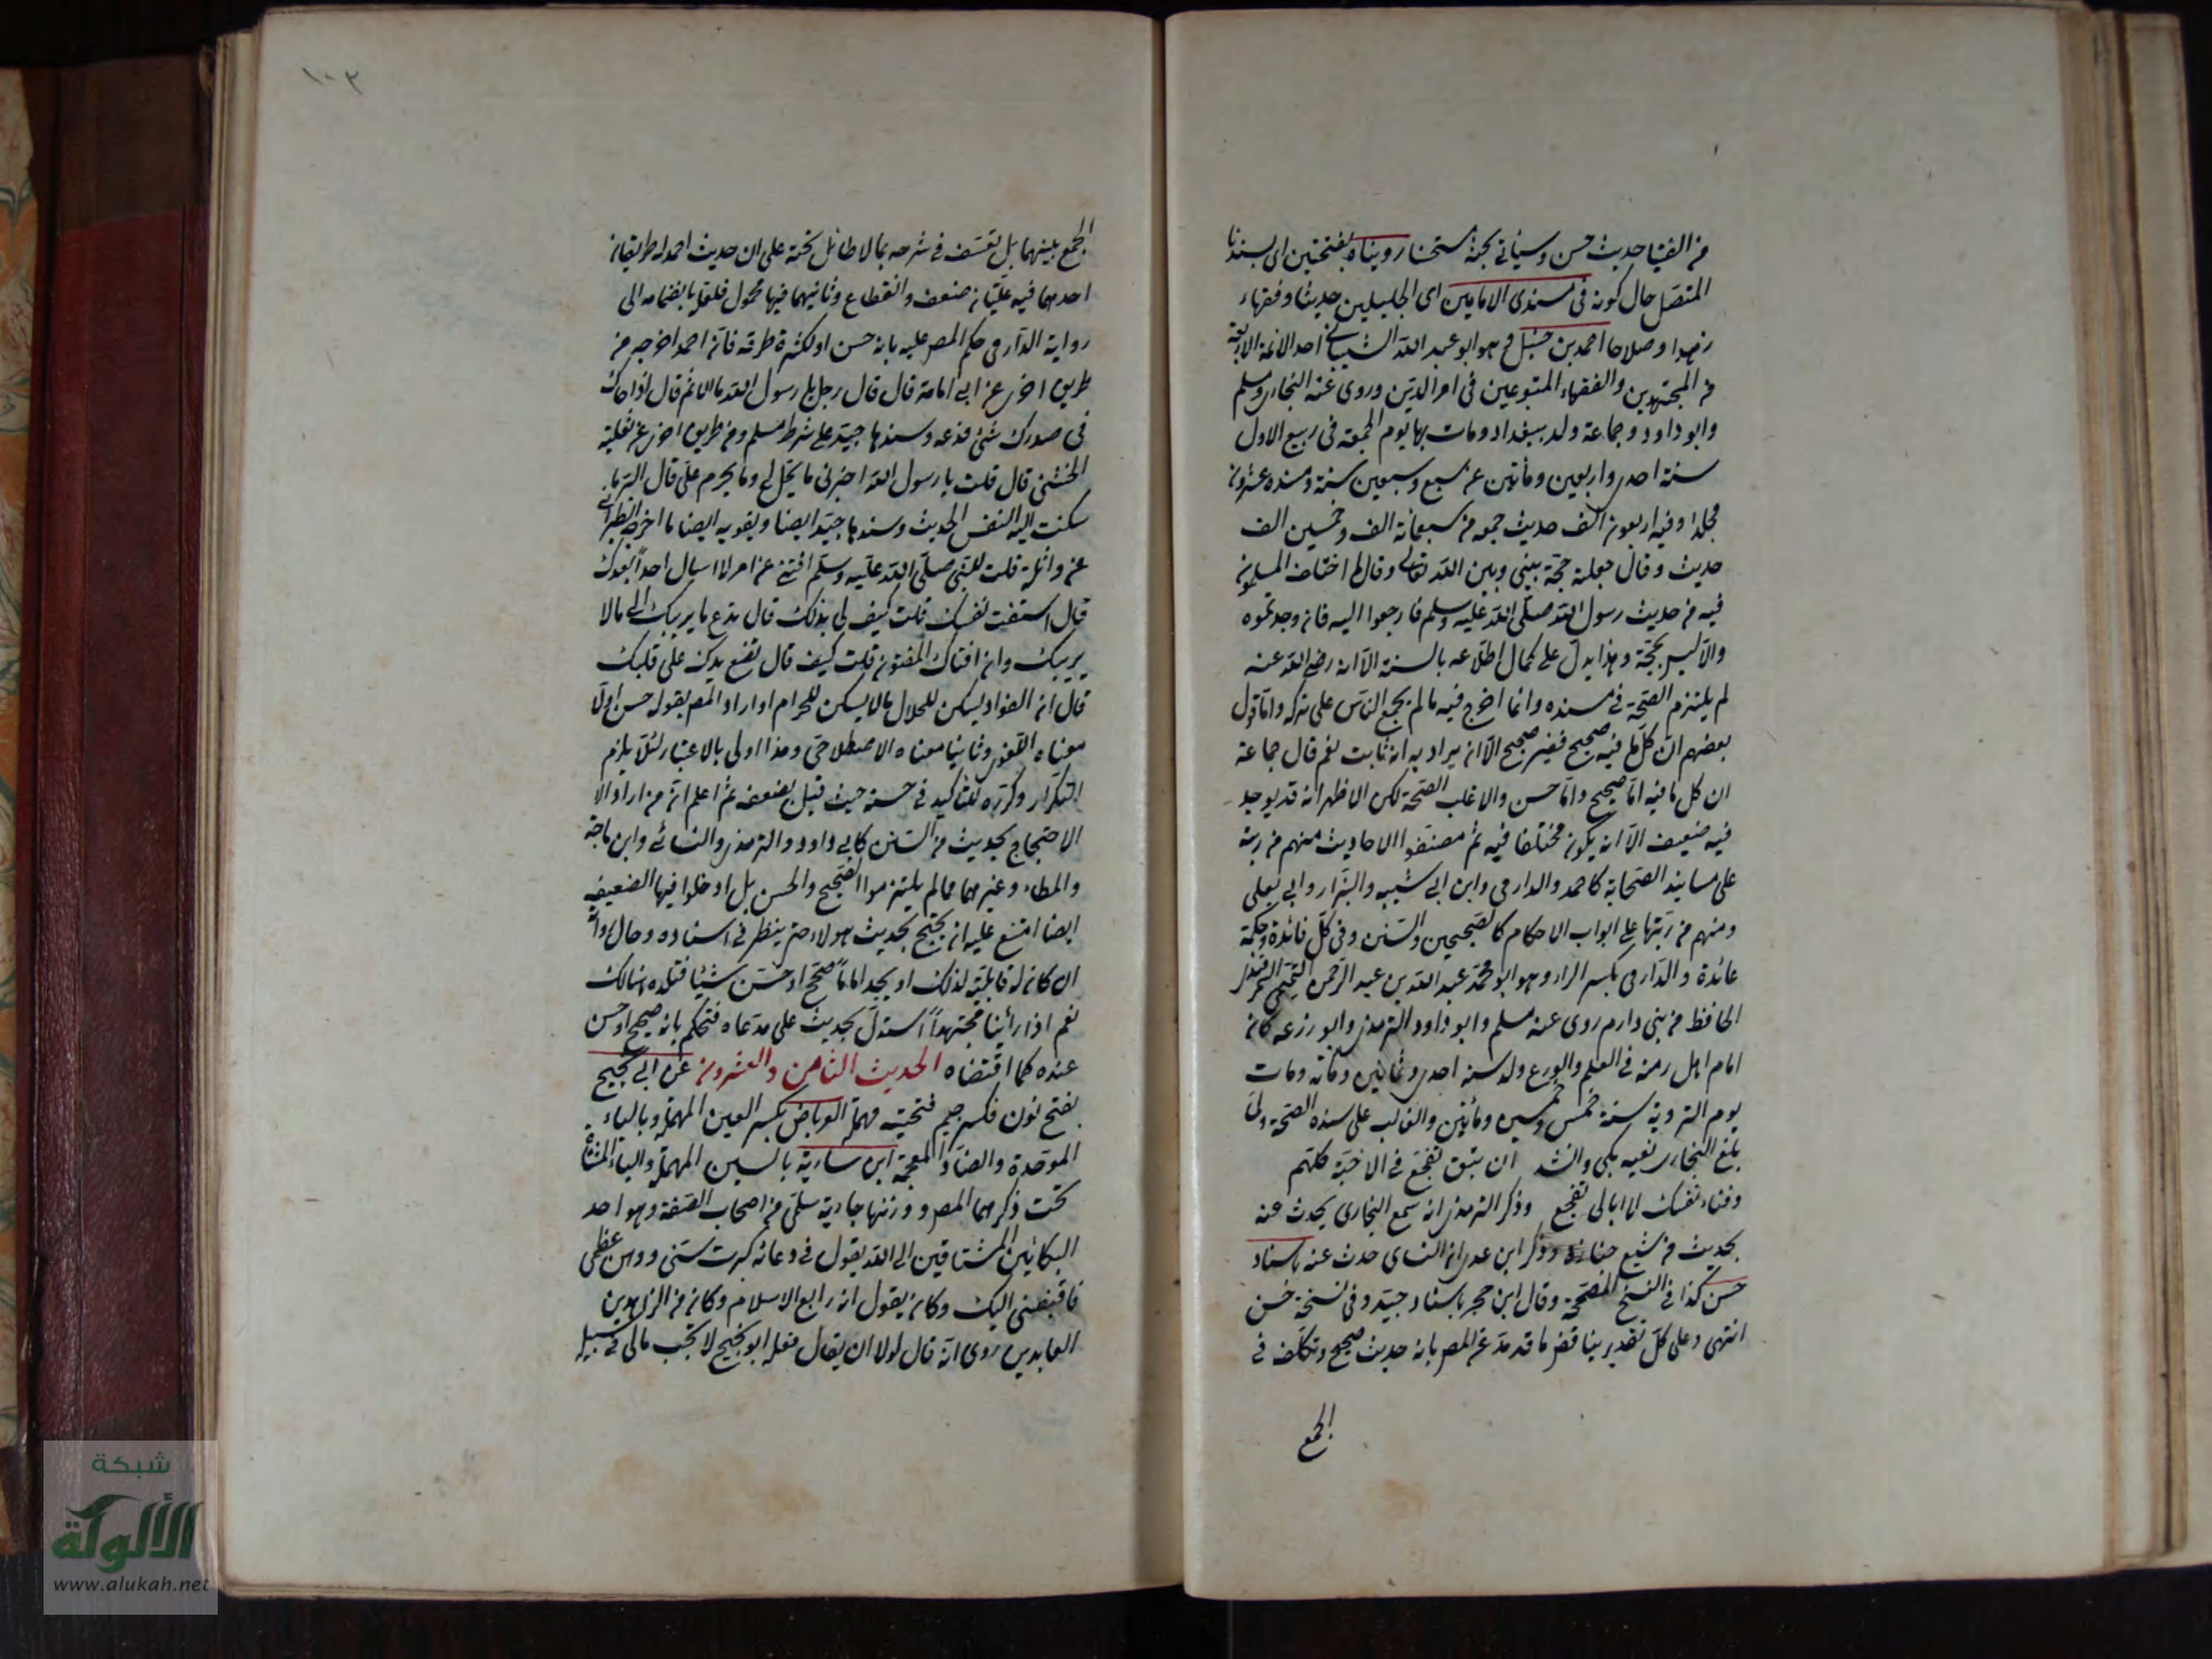 من الفتيا حديث حسن وسيأتي بحثه مستحضا رويناه بفتحتين اي بسندنا
المتصل حال كونه في مسندي الامامين اي الجليلين حديثا وفقها
زهدا وصلاحا احمد بن حنبل وهو ابو عبد الله الشيباني احد الائمة الاربعة
من المجتهدين والفقهاء المتبوعين في امر الدين وروى عنه البخاري ومسلم
وابو داود وجماعة ولد ببغداد ومات بها يوم الجمعة في ربيع الاول
سنة احدى واربعين ومأتين عن سبع وسبعين سنة ومسنده عشرون
مجلدا وفيه اربعون الف حديث جمعه من سبعمائة الف وخمسين الف
حديث وقال جعلته حجة بيني وبين الله تعالى وقال ما اختلف المسلمون
فيه من حديث رسول الله صلى الله عليه وسلم فارجعوا اليه فان وجدتموه
والا ليس بحجة وهذا يدل على كمال اطلاعه بالسنة الا انه رضي الله عنه
لم يلتزم الصحة في مسنده وانما اخرج فيه ما لم يجمع الناس على تركه واما قول
بعضهم ان كل ما فيه صحيح فغير صحيح الا ان يراد به انه ثابت نعم قال جماعة
ان كل ما فيه اما صحيح واما حسن والاغلب الصحة لكن الاظهر انه قد يوجد
فيه ضعيف الا انه يكون مختلفا فيه ثم مصنفوا الاحاديث منهم من رتبه
على مسانيد الصحابة كاحمد والدارمي وابن ابي شيبه والبزار وابي يعلى
ومنهم من رتبها على ابواب الاحكام كالصحيحين والسنن وفي كل فائدة وحكمة
عائدة والدارمي بكسر الراء وهو ابو محمد عبد الله بن عبد الرحمن التميمي السمرقندي
الحافظ من بني دارم روى عنه مسلم وابو داود والترمذي وابو زرعه كان
امام اهل زمنه في العلم والورع ولد سنه احدى وثمانين ومائه ومات
يوم التروية سنة خمس وخمسين ومأتين والغالب على سنده الصحة ولما
بلغ البخاري نعيه بكى وانشد ان تبق تفجع في الاحبة كلهم
وفناء نفسك لا ابالى تفجع وذكر الترمذي انه سمع البخاري يحدث عنه
بحديث من شيع جنازة وذكر ابن عدي ان النسائي حدث عنه باسناد
حسن كذا في النسخ المصححة وقال ابن حجر باسناد جيد وفي نسخة حسن
انتهى وعلى كل تقدير يناقض ما قدمه عن المص بانه حديث صحيح وتكلف في
الجمع
١٠٣
الجمع بينهما بل تعسف في شرحه بما لا طائل تحته على ان حديث احمد له طريقان
احدهما فيه علتان ضعف وانقطاع وثانيهما فيها مجهول فلعله بانضمامه الى
رواية الدارمي حكم المص عليه بانه حسن او لكثرة طرقه فانه احمد اخرجه من
طريق اخرى عن ابي امامة قال قال رجل يا رسول الله ما الاثم قال اذا حاك
في صدرك شئ فدعه وسندها جيد على شرط مسلم ومن طريق اخرى عن ثعلبة
الخشني قال قلت يا رسول الله اخبرني ما يحل لي وما يحرم علي قال البر ما
سكنت اليه النفس الحديث وسندها جيد ايضا ويقويه ايضا ما اخرجه الطبراني
عن واثلة قلت للنبي صلى الله عليه وسلم افتني عن امر لا اسال احدا بعدك
قال استفت نفسك قلت كيف لي بذلك قال تدع ما يريبك الى ما لا
يريبك وان افتاك المفتون قلت كيف قال تضع يدك على قلبك
قال ان الفؤاد ليسكن للحلال ما لا يسكن للحرام او اراد المص بقوله حسن اولا
معناه اللغوي وثانيا معناه الاصطلاحي وهذا اولى بالاعتبار لئلا يلزم
التكرار وكرره للتأكيد في حسنه حيث قيل بضعفه ثم اعلم ان من اراد الا
الاحتجاج بحديث من السنن كابي داود والترمذي والنسائي وابن ماجة
والموطاء وغيرهما مما لم يلتزموا الصحيح والحسن بل ادخلوا فيها الضعيف
ايضا امتنع عليه ان يحتج بحديث هولاء حتى ينظر في اسناده وحال رواته
ان كان له قابلية لذلك او يجد اماما صحح او حسن شيئا فقلده هنالك
نعم اذا رأينا مجتهدا استدل بحديث على مدعاه فنحكم بانه صحيح او حسن
عنده كما اقتضاه الحديث الثامن والعشرون عن ابي نجيح
بفتح نون فكسر جيم فتحتية مهملة العرباض بكسر العين المهملة وبالباء
الموحدة والضاد المعجمة ابن سارية بالسين المهملة والياء المثناة
تحت ذكرهما المص ووزنها جارية سلمي من اصحاب الصفة وهو احد
البكائين المشتاقين الى الله يقول في دعائه كبرت سني ووهن عظمي
فاقبضني اليك وكان يقول انه رابع الاسلام وكان من الزاهدين
العابدين روى انه قال لولا ان يقال فعله ابو نجيح لا تجب مالي في سبيله
شبكة
الألوكة
www.alukah.net